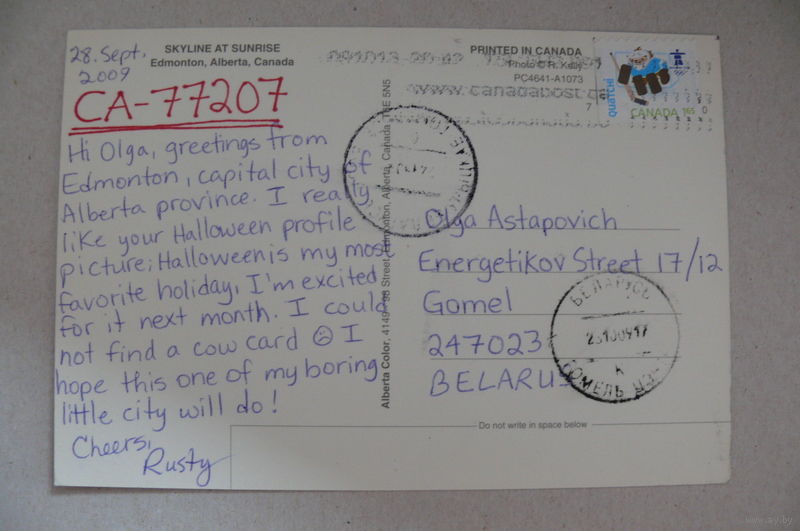 28. Sept.
2009
SKYLINE AT SUNRISE
Edmonton, Alberta, Canada
CA-77207
Hi Olga, greetings from
Edmonton, capital city of
Alberta province. I really
like your Halloween profile
picture; Halloween is my most
favorite holiday, I'm excited
for it next month. I could
not find a cow card ☹ I
hope this one of my boring
little city will do!
Cheers,
Rusty
PRINTED IN CANADA
Photo © R. Kelly
PC4641-A1073
7
www.canadapost.ca
QUATCHI
CANADA 165
Alberta Color, 4149 - 98 Street, Edmonton, Alberta, Canada, T6E 5N5
Olga Astapovich
Energetikov Street 17/12
Gomel
247023
BELARUS
БЕЛАРУСЬ
ГОМЕЛЬ
Do not write in space below
www.ay.by